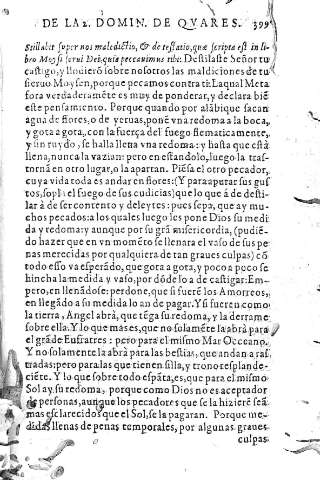 DE LA 2. DOMIN. DE QVARES. 399
Stillabit super nos maledictio, & detestatio, quæ scripta est in li-
bro Moysi serui Dei, quia peccauimus tibi: Destilaste Señor tu
castigo, y llouierō sobre nosotros las maldiciones de tu
sieruo Moysen, porque pecamos contra ti: La qual Meta
fora verdaderamēte es muy de ponderar, y declara biē
este pensamiento. Porque quando por alābique sacan
agua de flores, o de yeruas, ponē vna redoma a la boca,
y gota a gota, con la fuerça del fuego flematicamente,
y sin ruydo, se halla llena vna redoma: y hasta que está
llena, nunca la vazian: pero en estandolo, luego la tras-
tornā en otro lugar, o la apartan. Piēsa el otro pecador,
cuya vida toda es andar en flores: (Y para apurar sus gus
tos, sopla el fuego de sus cudicias) que lo que à de desti-
lar à de ser contento y deleytes: pues sepa, que ay mu-
chos pecados: a los quales luego les pone Dios su medi
da y redoma: y aunque por su grā misericordia, (pudiē-
do hazer que en vn momēto se llenara el vaso de sus pe
nas merecidas por qualquiera de tan graues culpas) cō
todo esso va esperādo, que gota a gota, y poco a poco se
hincha la medida y vaso, por dōde los a de castigar: Em-
pero, en llenādose: perdone, que si fuerē los Amorreos,
en llegādo a su medida lo an de pagar. Y si fueren como
la tierra, Angel abrà, que tēga su redoma, y la derrame
sobre ella: Y lo que mas es, que no solamēte la abrà para
el grāde Eufratres: pero para el mismo Mar Occeano.
Y no solamente la abrà para las bestias, que andan arras
tradas: pero para las que tienen silla, y trono resplande-
ciēte. Y lo que sobre todo espāta, es, que para el mismo
Sol ay su redoma, porque como Dios no es aceptador
de personas, aunque los pecadores que se la hizierē seā
mas esclarecidos que el Sol, se la pagaran. Porque me-
didas llenas de penas temporales, por algunas graues
culpas